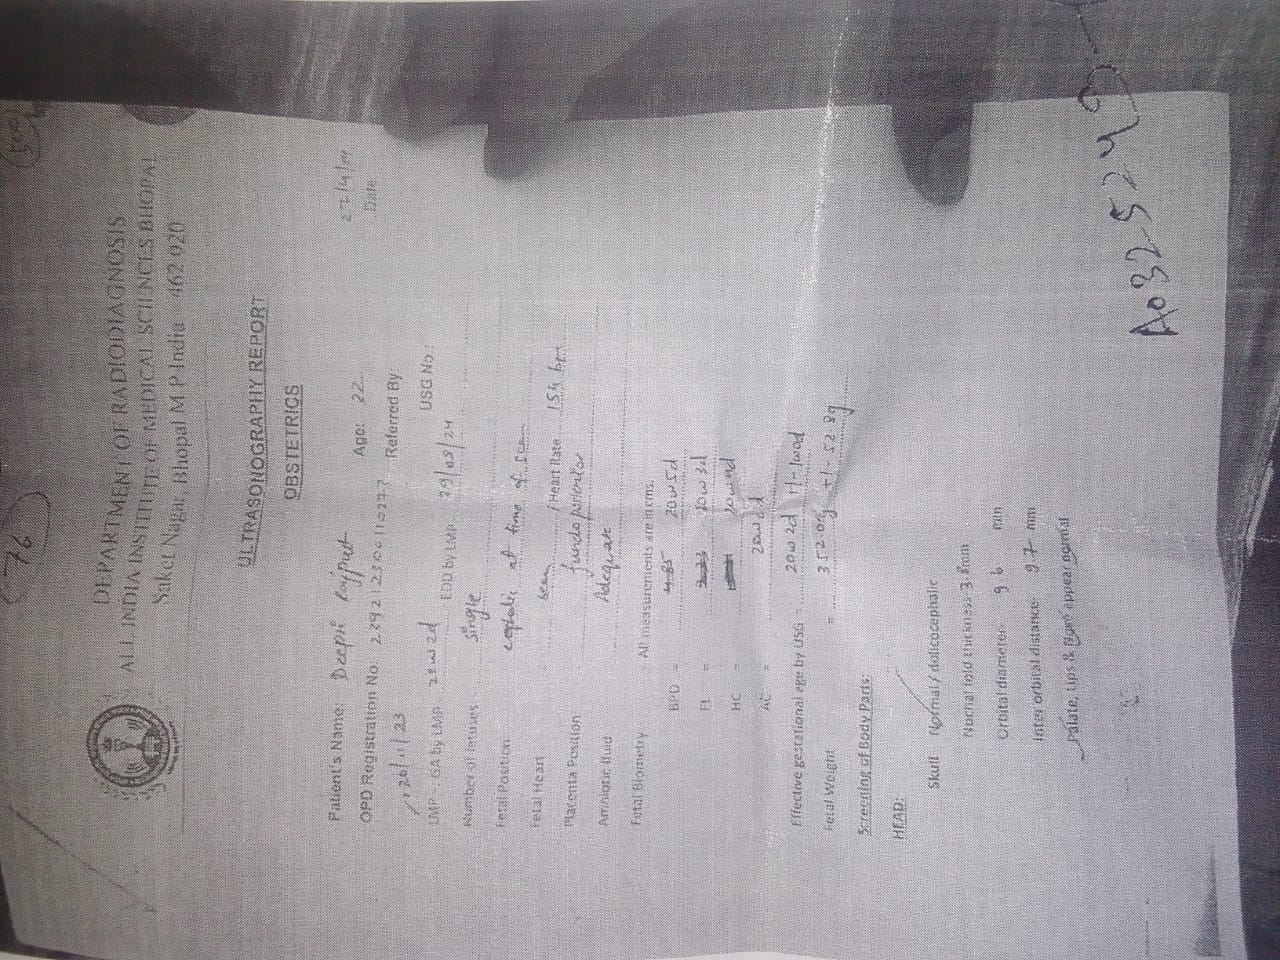 76
DEPARTMENT OF RADIODIAGNOSIS
ALL INDIA INSTITUTE OF MEDICAL SCIENCES BHOPAL
Saket Nagar, Bhopal M P India 462 020
ULTRASONOGRAPHY REPORT
OBSTETRICS
Date
Patient's Name: Deepti Rajput Age: 22
OPD Registration No. Referred By:
20/11/23
LMP - GA by LMP 22w2d EDD by LMP 29/08/24 USG No.:
Number of fetuses Single
Fetal Position cephalic at time of
Fetal Heart seen / Heart Rate 154 bpm
Placenta Position fundo posterior
Amniotic fluid Adequate
Fetal Biometry All measurements are in cms.
BPD = 4.85 20w5d
FL = 20w3d
HC =
AC = 20w2d
Effective gestational age by USG = 20w2d +/- 1w0d
Fetal Weight = 352.0g +/- 52.8g
Screening of Body Parts:
HEAD:
Skull Normal / dolicocephalic
Nuchal fold thickness-3.8mm
Orbital diameter- 9 6 mm
Inter orbital distance- 9 7 mm
Palate, Lips & appear normal
A0325249